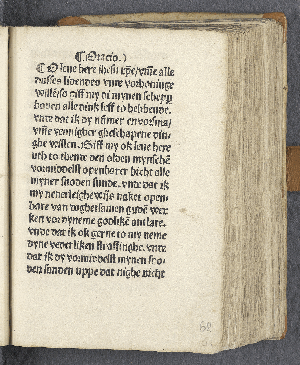 ¶ Oracio.
O leue here ihesu xpe/ vm̄e alle
dusses lidendes vnde vorhoninge
willē so giff my di mynen schepp
bouen alle dink leff to hebbende.
vnde dat ik dy nūmer en vorsma
vm̄e yenigher gheschapene din
ghe willen. Giff my ok leue here
uth to themē den olden mynschē
vormiddelst openbarer bicht alle
myner snoden sunde. vnde dat ik
my nenerleighe wise naket open-
bare van doghetsamen gudē wer
ken vor dyneme godlikē antlate.
vnde dat ik ok gerne to my neme
dyne vederliken straffinghe. vnde
dat ik dy vormiddelst mynen sno-
den sunden uppe dat nighe nicht
62